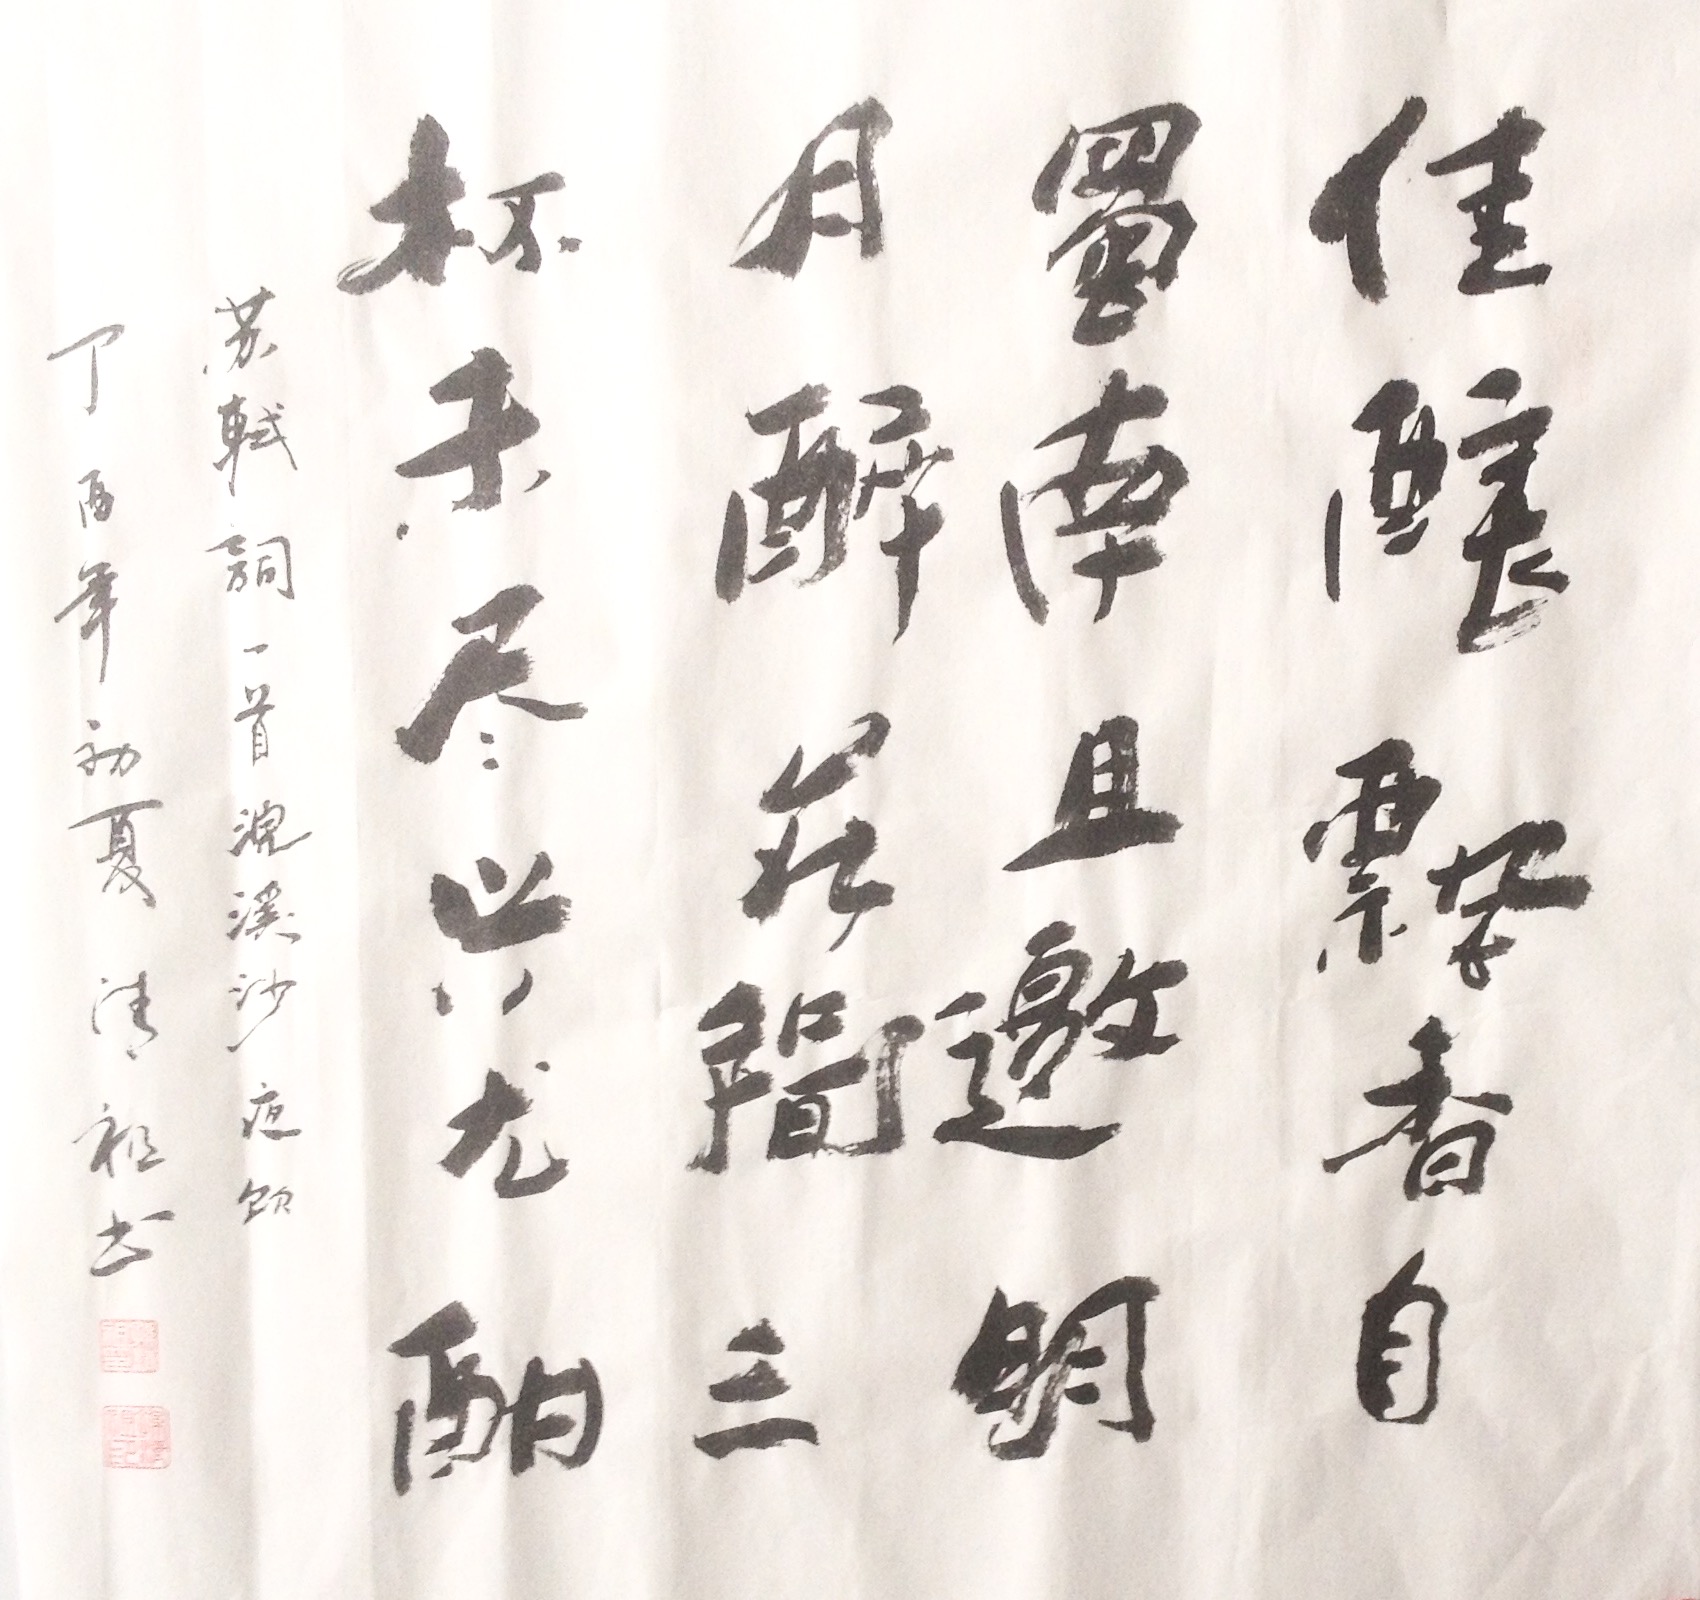 佳釀飄香自
蜀南且邀明
月醉花間三
杯未尽兴尤
酣
苏軾詞一首浣溪沙夜飲
丁酉年初夏清祖书